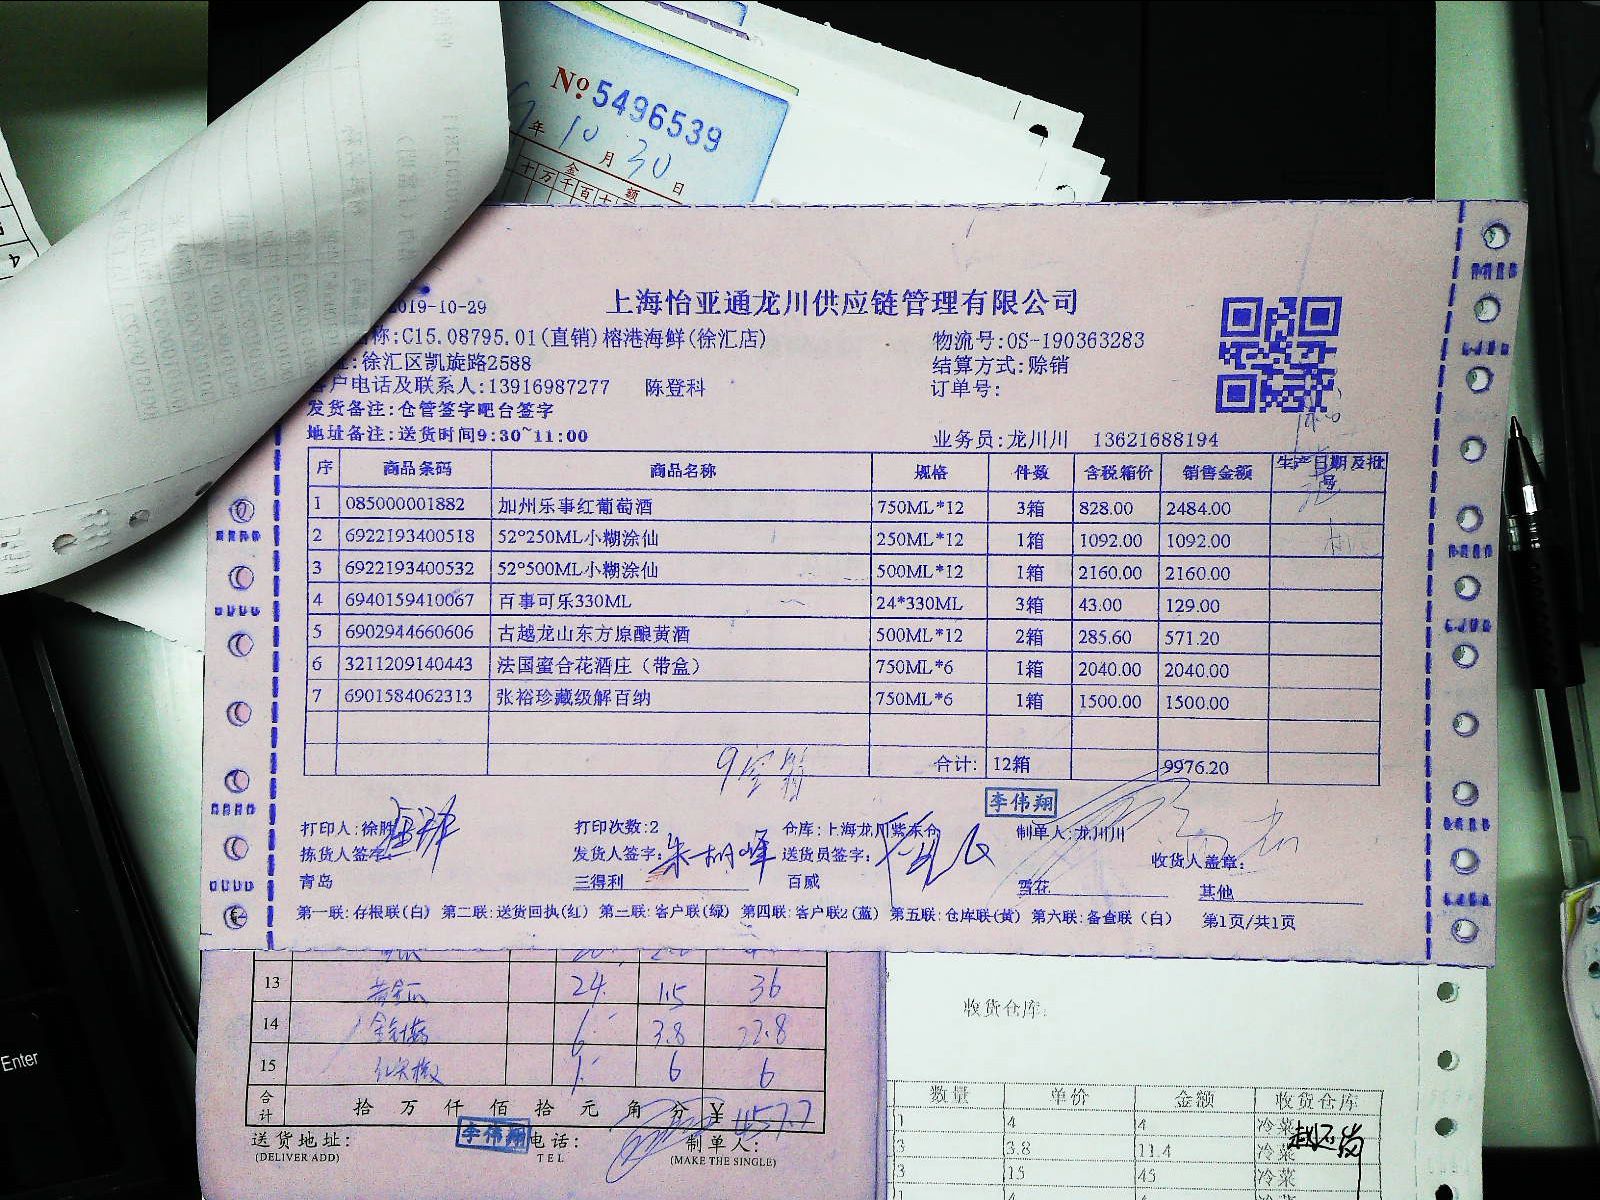 № 5496539
年 10 月 30 日
金 额
十 万 千 百 十
2019-10-29
上海怡亚通龙川供应链管理有限公司
称:C15.08795.01(直销)榕港海鲜(徐汇店)
物流号:OS-190363283
:徐汇区凯旋路2588
结算方式:赊销
客户电话及联系人:13916987277 陈登科
订单号:
发货备注:仓管签字吧台签字
地址备注:送货时间9:30~11:00
业务员:龙川川 13621688194
序 商品条码 商品名称 规格 件数 含税箱价 销售金额 生产日期及批号
1 085000001882 加州乐事红葡萄酒 750ML*12 3箱 828.00 2484.00
2 6922193400518 52°250ML小糊涂仙 250ML*12 1箱 1092.00 1092.00
3 6922193400532 52°500ML小糊涂仙 500ML*12 1箱 2160.00 2160.00
4 6940159410067 百事可乐330ML 24*330ML 3箱 43.00 129.00
5 6902944660606 古越龙山东方原酿黄酒 500ML*12 2箱 285.60 571.20
6 3211209140443 法国蜜合花酒庄（带盒） 750ML*6 1箱 2040.00 2040.00
7 6901584062313 张裕珍藏级解百纳 750ML*6 1箱 1500.00 1500.00
合计: 12箱 9976.20
李伟翔
打印人:徐胜 打印次数:2 仓库:上海龙川紫东仓 制单人:龙川川
拣货人签字: 发货人签字: 朱一树峰 送货员签字: 收货人盖章:
青岛 三得利 百威 雪花 其他
第一联:存根联(白) 第二联:送货回执(红) 第三联:客户联(绿) 第四联:客户联2(蓝) 第五联:仓库联(黄) 第六联:备查联（白） 第1页/共1页
13 24 1.5 36
14 6 3.8 22.8
15 1 6 6
合计 拾 万 仟 佰 拾 元 角 分 ¥ 457.7
送货地址: 李伟翔 电话: 制单人:
(DELIVER ADD) TEL (MAKE THE SINGLE)
收货仓库:
数量 单价 金额 收货仓库
1 4 4 冷菜
3 3.8 11.4 冷菜
3 15 45 冷菜
Enter